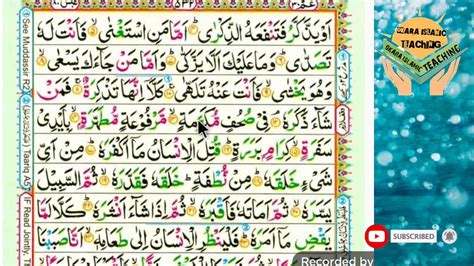 عَمَّ ٣٠
٥٣٢
اَوْ يَذَّكَّرُ فَتَنْفَعَهُ الذِّكْرٰى اَمَّا مَنِ اسْتَغْنٰى
تَصَدّٰى وَمَا عَلَيْكَ اَلَّا يَزَّكّٰى وَاَمَّا مَنْ جَآءَكَ يَسْعٰى
وَهُوَ يَخْشٰى فَاَنْتَ عَنْهُ تَلَهّٰى كَلَّا اِنَّهَا تَذْكِرَةٌ فَمَنْ
شَآءَ ذَكَرَهٗ فِيْ صُحُفٍ مُّكَرَّمَةٍ مَّرْفُوْعَةٍ مُّطَهَّرَةٍ بِاَيْدِيْ
سَفَرَةٍ كِرَامٍ بَرَرَةٍ قُتِلَ الْاِنْسَانُ مَآ اَكْفَرَهٗ مِنْ اَيِّ
شَيْءٍ خَلَقَهٗ مِنْ نُّطْفَةٍ خَلَقَهٗ فَقَدَّرَهٗ ثُمَّ السَّبِيْلَ
يَسَّرَهٗ ثُمَّ اَمَاتَهٗ فَاَقْبَرَهٗ ثُمَّ اِذَا شَآءَ اَنْشَرَهٗ كَلَّا لَمَّا
يَقْضِ مَآ اَمَرَهٗ فَلْيَنْظُرِ الْاِنْسَانُ اِلٰى طَعَامِهٖٓ اَنَّا صَبَبْنَا
See Muddassir R2
IF Read Jointly,
ISLAMIC
TEACHING
ISLAMIC TEACHING
SUBSCRIBED
Recorded by